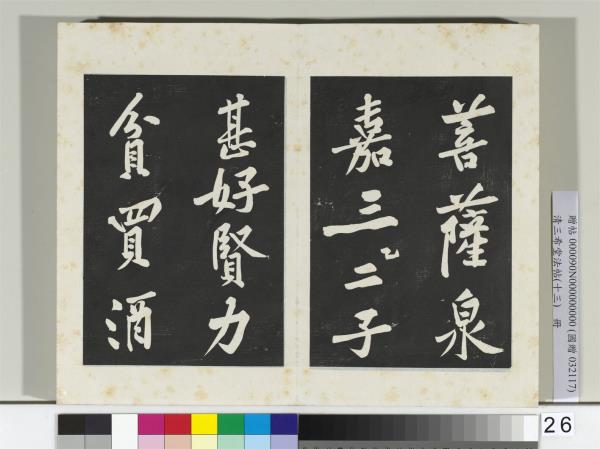 菩薩泉
嘉三二子
甚好賢力
貧買酒
贈帖 000090N000000000 (國贈 032117)
清三希堂法帖(十三) 冊
26